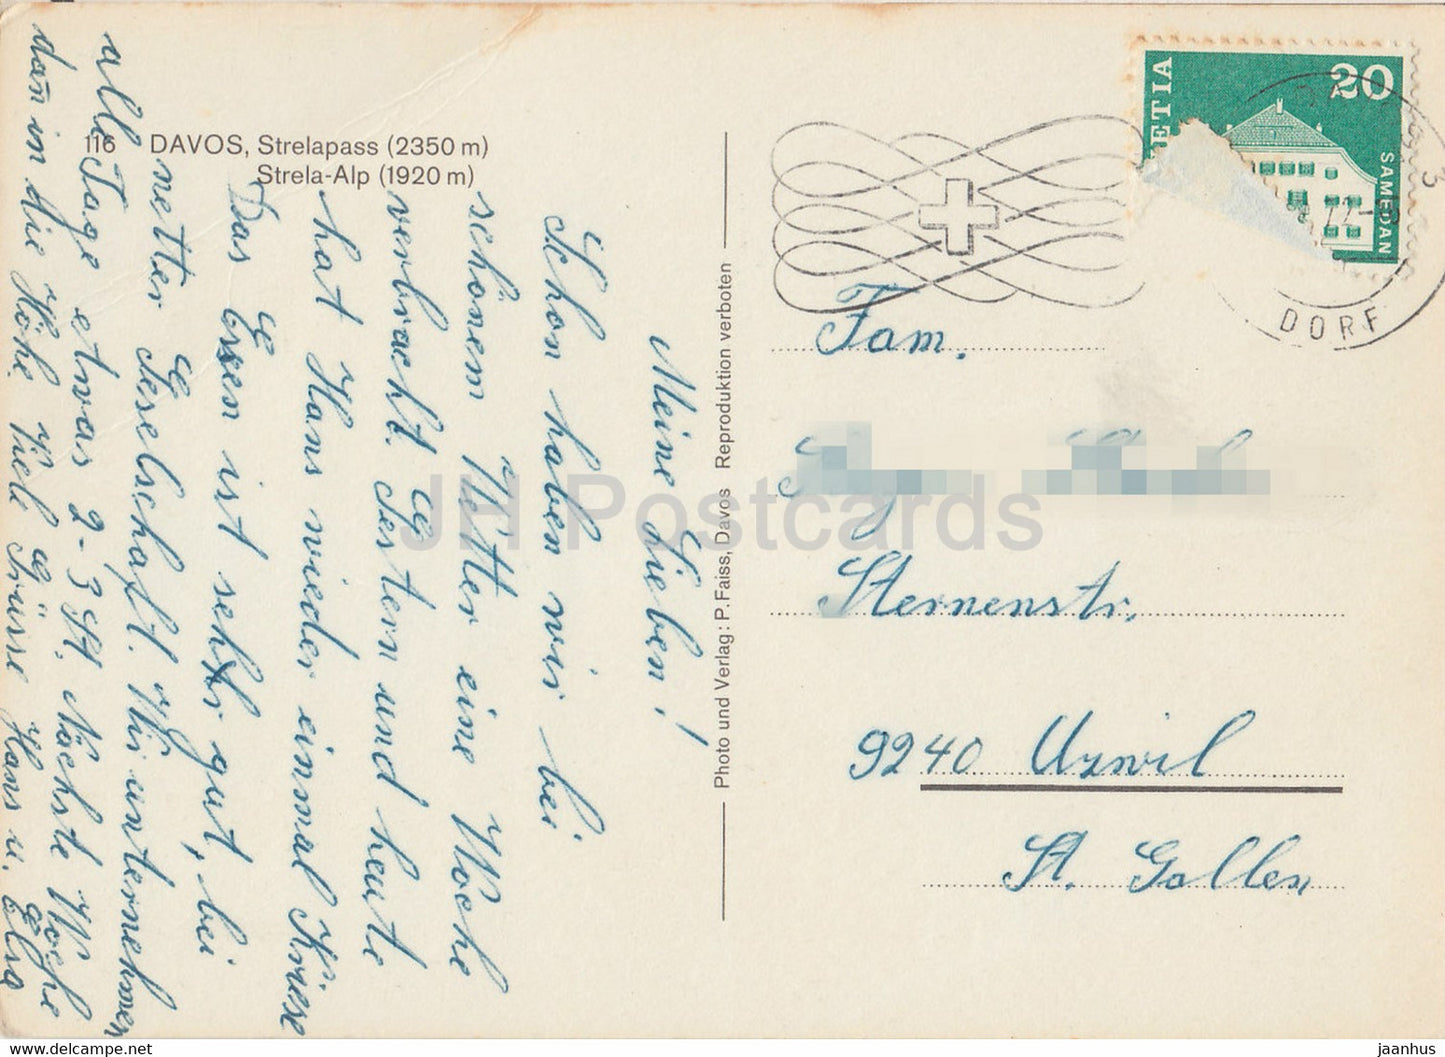 116 DAVOS, Strelapass (2350 m)
Strela-Alp (1920 m)
Meine Lieben!
Schon haben wir bei
schönem Wetter eine Woche
verbracht. Gestern und heute
hat Hans wieder einmal Kriese
Das Essen ist sehr gut, bei
netter Geselschaft. Wir unternehmen
alle Tage etwas 2-3 St. Nächste Woche
dan̄ in die Höhe. Viele Grüsse Hans u. Elsa
Photo und Verlag: P. Faiss, Davos Reproduktion verboten
HELVETIA
20
SAMEDAN
DORF
Fam.
Sternenstr.
9240 Uzwil
St. Gallen
JH Postcards
https://www.delcampe.net
jaanhus